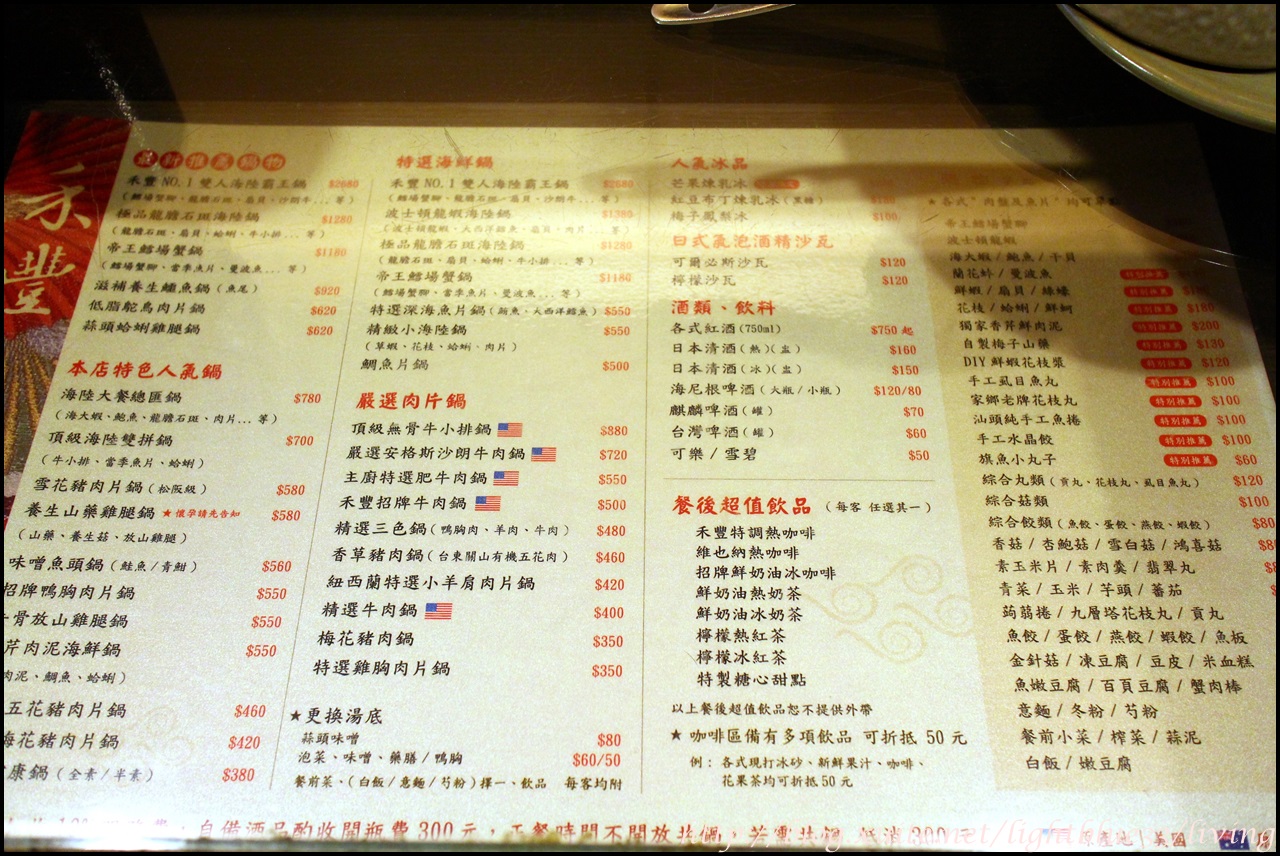 禾豐
最新推薦鍋物
禾豐 NO.1 雙人海陸霸王鍋 $2680
(鱈場蟹腳、龍膽石斑、扇貝、沙朗牛... 等)
極品龍膽石斑海陸鍋 $1280
(龍膽石斑、扇貝、蛤蜊、牛小排... 等)
帝王鱈場蟹鍋 $1180
(鱈場蟹腳、當季魚片、曼波魚... 等)
滋補養生鱷魚鍋(魚尾) $920
低脂鴕鳥肉片鍋 $620
蒜頭蛤蜊雞腿鍋 $620
本店特色人氣鍋
海陸大餐總匯鍋 $780
(海大蝦、鮑魚、龍膽石斑、肉片... 等)
頂級海陸雙拼鍋 $700
(牛小排、當季魚片、蛤蜊)
雪花豬肉片鍋(松阪級) $580
養生山藥雞腿鍋 ★懷孕請先告知 $580
(山藥、養生菇、放山雞腿)
味噌魚頭鍋(鮭魚/青魽) $560
招牌鴨胸肉片鍋 $550
骨放山雞腿鍋 $550
芹肉泥海鮮鍋 $550
肉泥、鯛魚、蛤蜊)
五花豬肉片鍋 $460
梅花豬肉片鍋 $420
康鍋(全素/半素) $380
特選海鮮鍋
禾豐 NO.1 雙人海陸霸王鍋 $2680
(鱈場蟹腳、龍膽石斑、扇貝、沙朗牛... 等)
波士頓龍蝦海陸鍋 $1380
(波士頓龍蝦、大西洋鱈魚、扇貝、肉片... 等)
極品龍膽石斑海陸鍋 $1280
(龍膽石斑、扇貝、蛤蜊、牛小排... 等)
帝王鱈場蟹鍋 $1180
(鱈場蟹腳、當季魚片、曼波魚... 等)
特選深海魚片鍋(鮪魚、大西洋鱈魚) $550
精緻小海陸鍋 $550
(草蝦、花枝、蛤蜊、肉片)
鯛魚片鍋 $500
嚴選肉片鍋
頂級無骨牛小排鍋 $880
嚴選安格斯沙朗牛肉鍋 $720
主廚特選肥牛肉鍋 $550
禾豐招牌牛肉鍋 $500
精選三色鍋(鴨胸肉、羊肉、牛肉) $480
香草豬肉鍋(台東關山有機五花肉) $460
紐西蘭特選小羊肩肉片鍋 $420
精選牛肉鍋 $400
梅花豬肉鍋 $350
特選雞胸肉片鍋 $350
★更換湯底
蒜頭味噌 $80
泡菜、味噌、藥膳/鴨胸 $60/50
餐前菜、(白飯/意麵/芍粉)擇一、飲品 每客均附
人氣冰品
芒果煉乳冰
紅豆布丁煉乳冰(黑糖)
梅子鳳梨冰 $100
日式氣泡酒精沙瓦
可爾必斯沙瓦 $120
檸檬沙瓦 $120
酒類、飲料
各式紅酒(750ml) $750 起
日本清酒(熱)(盅) $160
日本清酒(冰)(盅) $150
海尼根啤酒(大瓶/小瓶) $120/80
麒麟啤酒(罐) $70
台灣啤酒(罐) $60
可樂/雪碧 $50
餐後超值飲品 (每客 任選其一)
禾豐特調熱咖啡
維也納熱咖啡
招牌鮮奶油冰咖啡
鮮奶油熱奶茶
鮮奶油冰奶茶
檸檬熱紅茶
檸檬冰紅茶
特製糖心甜點
以上餐後超值飲品恕不提供外帶
★ 咖啡區備有多項飲品 可折抵 50 元
例: 各式現打冰砂、新鮮果汁、咖啡、
花果茶均可折抵 50 元
★各式"肉盤及魚片"均可單點
帝王鱈場蟹腳
波士頓龍蝦
海大蝦/鮑魚/干貝
蘭花蚌/曼波魚 特別推薦
鮮蝦/扇貝/綠蠔 特別推薦
花枝/蛤蜊/鮮蚵 特別推薦 $180
獨家香芹鮮肉泥 特別推薦 $200
自製梅子山藥 特別推薦 $130
DIY 鮮蝦花枝漿 特別推薦 $120
手工虱目魚丸 特別推薦 $100
家鄉老牌花枝丸 特別推薦 $100
汕頭純手工魚捲 特別推薦 $100
手工水晶餃 特別推薦 $100
旗魚小丸子 特別推薦 $60
綜合丸類(貢丸、花枝丸、虱目魚丸) $120
綜合菇類 $100
綜合餃類(魚餃、蛋餃、燕餃、蝦餃) $80
香菇/杏鮑菇/雪白菇/鴻喜菇
素玉米片/素肉羹/翡翠丸
青菜/玉米/芋頭/蕃茄
蒟蒻捲/九層塔花枝丸/貢丸
魚餃/蛋餃/燕餃/蝦餃/魚板
金針菇/凍豆腐/豆皮/米血糕
魚嫩豆腐/百頁豆腐/蟹肉棒
意麵/冬粉/芍粉
餐前小菜/榨菜/蒜泥
白飯/嫩豆腐
自備酒品酌收開瓶費 300 元,正餐時間不開放共鍋,若需共鍋 低消 300 元 原產地 美國